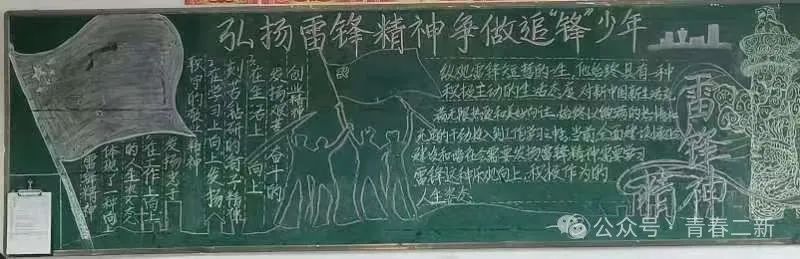 弘扬雷锋精神争做追"锋"少年
雷锋精神
体现了一种向上
的人生态度
一在工作上向上
发扬安于
职守的敬业精神
二在学习上向上发扬
刻苦钻研的钉子精神
三在生活上向上
发扬艰苦奋斗的
创业精神
纵观雷锋短暂的一生,他始终具有一种
积极主动的生活态度对新中国新生活充
满无限热爱和美好向往,始终以饱满的热情和
充足的干劲投入到工作学习中,当前全面建设
需要发扬雷锋精神需要学习
雷锋这种乐观向上、积极作为的
人生态度
雷锋精神
公众号·青春二新